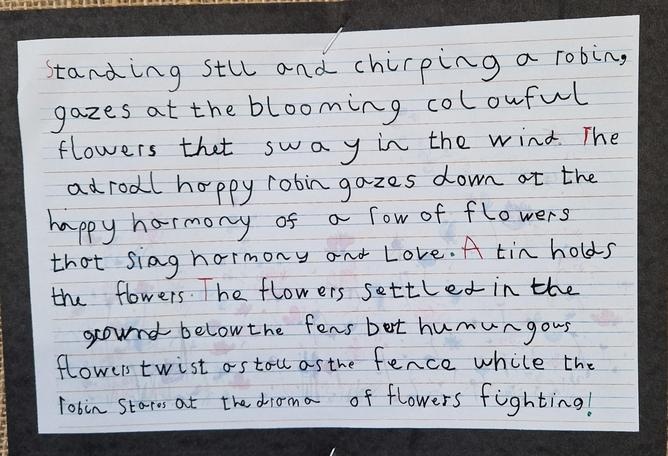 Standing stll and chirping a robin,
gazes at the blooming colouful
flowers thet sway in the wind. The
adrodl happy robin gazes down at the
happy harmony of a row of flowers
that siag harmony and Love. A tin holds
the flowers. The flowers settled in the
ground below the fens but humungous
flowers twist as tall as the fence while the
robin Stares at the drama of flowers fighting!